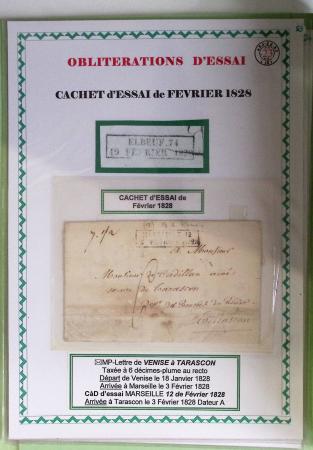 OBLITERATIONS D'ESSAI
CACHET d'ESSAI de FEVRIER 1828
ELBEUF.74
19 FEVRIER 1828
CACHET d'ESSAI de
Février 1828
A Monsieur
Monsieur
Tarascon
MP-Lettre de VENISE à TARASCON
Taxée à 6 décimes-plume au recto
Départ de Venise le 18 Janvier 1828
Arrivée à Marseille le 3 Février 1828
CàD d'essai MARSEILLE 12 de Février 1828
Arrivée à Tarascon le 3 Février 1828 Dateur A